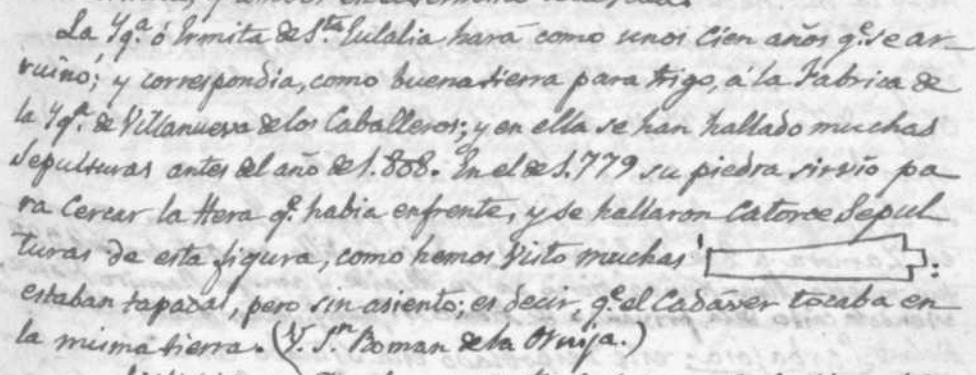 La Yg.ª ó Ermita de S.ta Eulalia hará como unos Cien años q.e se ar-
ruinó; y correspondia, como buena tierra para trigo, á la Fabrica de
la Yg.ª de Villanueva de los Caballeros; y en ella se han hallado muchas
Sepulturas antes del año de 1.808. En el de 1.779 su piedra sirvió pa
ra Cercar la Hera q.e habia enfrente, y se hallaron Catorce Sepul
turas de esta figura, como hemos Visto muchas :
estaban tapadas, pero sin asiento; es decir, q.e el Cadáver tocaba en
la misma tierra. (V. S.n Roman de la Ornija.)